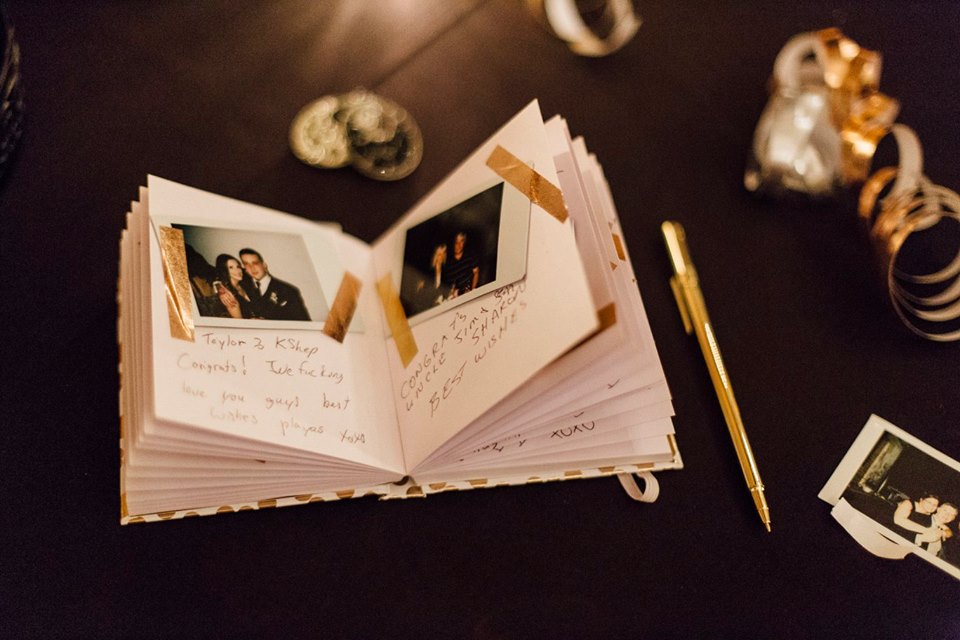 Taylor & KShep
Congrats! I we fucking
love you guys best
wishes playas xoxo
CONGRATS
UNCLE SIM &
SHARON
BEST WISHES
XOXO